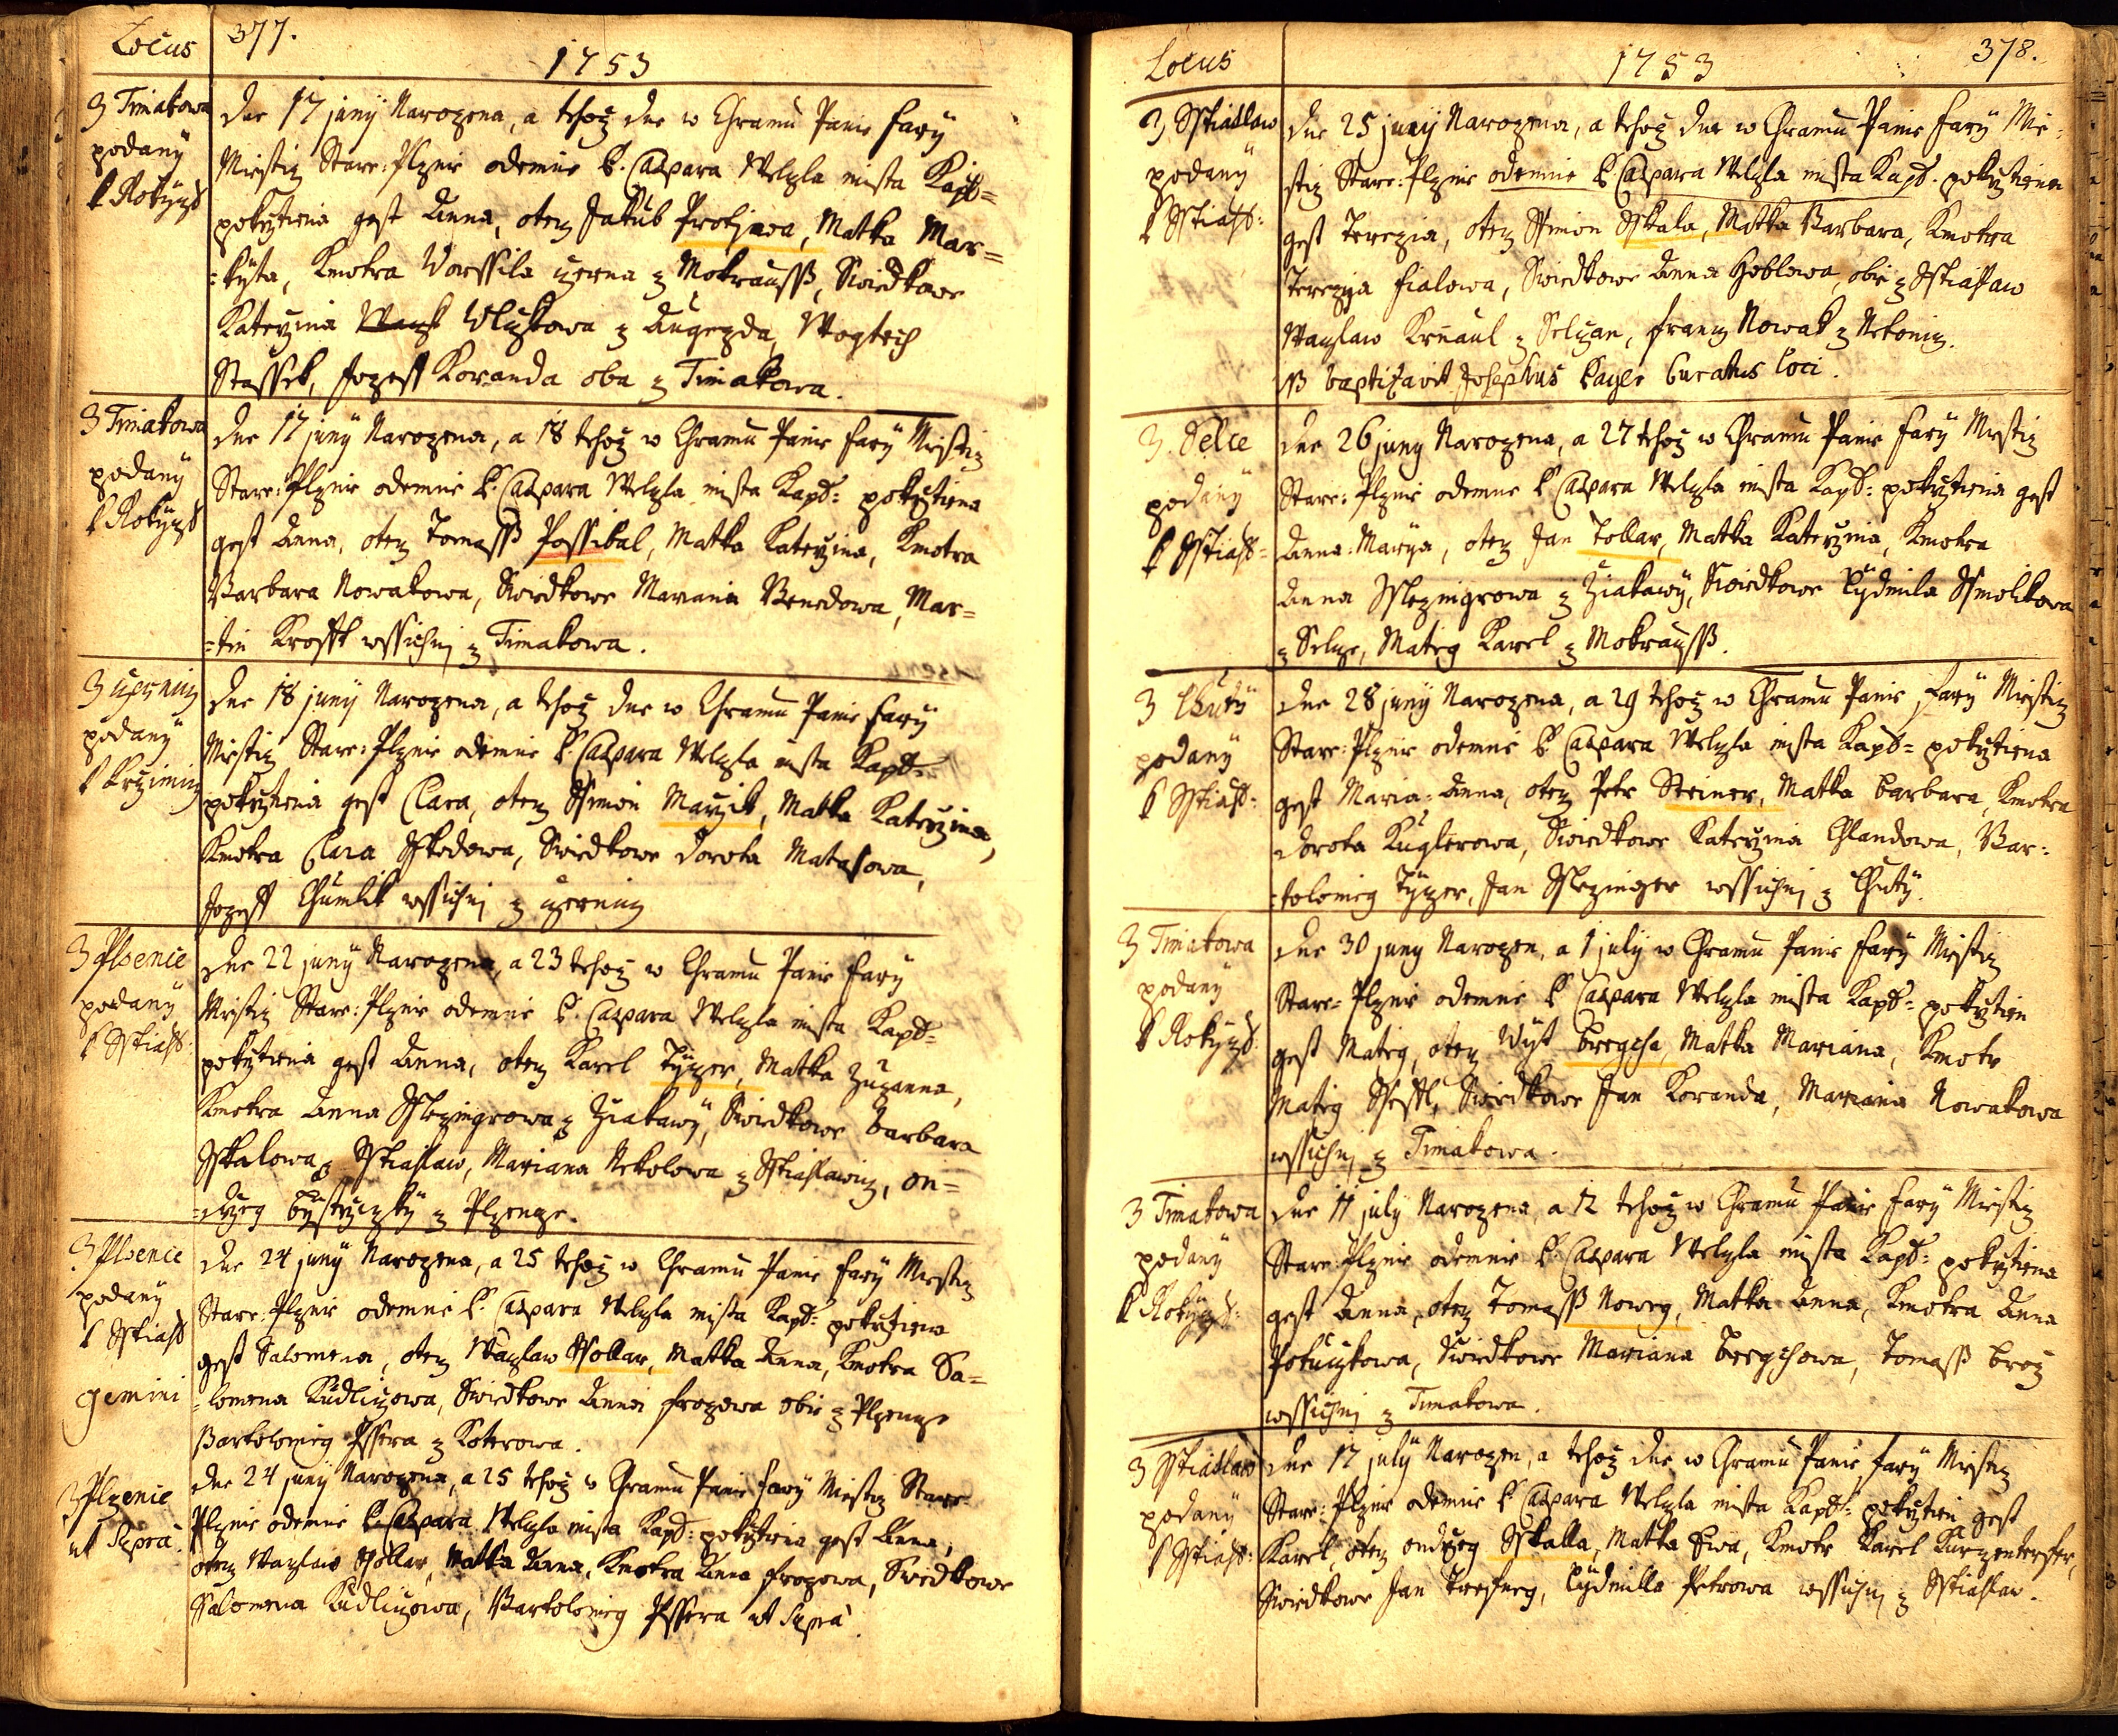 Locus 377.
1753
3 Timakowa
podany
k Rokyzs
dne 17 juny Narozena, a tehoz dne w Chramu Panie fary
Miestiz Stare: Plznie odemnie P. Caspara Welzla mista Kapl=
pokrztiena gest Anna, otez Jakub Protiwa, Matka Mar=
=kyta, Kmotra Worssila czerna z Mokrausß, Swiedkowe
Katerzina Wlczkowa z Augezda, Wogtiech
Stassek, Jozeff Koranda oba z Timakowa.
3 Timakowa
podany
k Rokyzs
dne 17 juny Narozena, a 18 tehoz w Chramu Panie fary Miestiz
Stare: Plznie odemnie P. Caspara Welzla mista Kapl= pokrztiena
gest Anna, otez Tomasß Possibal, Matka Katerzina, Kmotra
Barbara Nowakowa, Swiedkowe Mariana Benedowa, Mar=
=tin Krofft wssichni z Timakowa.
3 czerniz
podany
k krzimiz
dne 18 juny Narozena, a tehoz dne w Chramu Panie fary
Miestiz Stare: Plznie odemnie P. Caspara Welzla mista Kapl=
pokrztiena gest Clara, otez Ssimon Marzik, Matka Katerzina,
Kmotra Clara Skodowa, Swiedkowe dorota Matasowa,
Jozeff Chumlik wssichni z czerniz
3 Plsenie
podany
k Sstiahl.
dne 22 juny Narozena, a 23 tehoz w Chramu Panie fary
Miestiz Stare: Plznie odemnie P. Caspara Welzla mista Kapl=
pokrztiena gest Anna, otez Karel Tyzer, Matka Zuzanna,
Kmotra Anna Sslezingrowa z Ziakawy, Swiedkowe Barbara
Skalowa z Sstiahlaw, Mariana Nekolowa z Sstiahlawiz, on=
=drzeg Bystrzizky z Plzenze.
3 Plsenie
podany
k Sstiahl
gemini
dne 24 juny Narozena, a 25 tehoz w Chramu Panie fary Miestiz
Stare: Plznie odemnie P. Caspara Welzla mista Kapl: pokrztiena
gest Salomena, otez Wazlaw Hollar, Matka Anna, Kmotra Sa=
=lomena Kudliczowa, Swiedkowe Anna frozowa obie z Plzenze
Bartolomieg Pssera z Koterowa.
3 Plzenie
ut Supra.
dne 24 juny Narozena, a 25 tehoz w Chramu Panie fary Miestiz Stare:
Plznie odemnie P. Caspara Welzla mista Kapl: pokrztiena gest Anna,
otez Wazlaw Hollar, Matka Anna, Kmotra Anna frozowa, Swiedkowe
Salomena Kudliczowa, Bartolomieg Pssera ut Supra.
Locus 1753 378.
3 Sstiahlaw
podany
k Sstiahl:
dne 25 juny Narozena, a tehoz dne w Chramu Panie fary Mie=
stiz Stare: Plznie odemnie P. Caspara Welzla mista Kapl. pokrztiena
gest Terezia, otez Ssimon Skala, Matka Barbara, Kmotra
Terezya fialowa, Swiedkowe Anna Hoblowa, obie z Sstiahlaw
Wazlaw Krnaul z Selczan, franz Nowak z Nekoniz.
NB baptizavit Josephus Payer Curatus Loci.
3 Selce
podany
k Sstiahl=
dne 26 juny Narozena, a 27 tehoz w Chramu Panie fary Miestiz
Stare: Plznie odemnie P. Caspara Welzla mista Kapl: pokrztiena gest
Anna: Marya, otez Jan Tollar, Matka Katerzina, Kmotra
Anna Sslezingrowa z Ziakawy, Swiedkowe Lydmila Smolikowa
z Selze, Mateg Karel z Mokrausß.
3 Lhuty
podany
k Sstiahl:
dne 28 juny Narozena, a 29 tehoz w Chramu Panie fary Miestiz
Stare: Plznie odemnie P. Caspara Welzla mista Kapl= pokrztiena
gest Maria= Anna, otez Petr Steiner, Matka Barbara, Kmotra
dorota Kuglerowa, Swiedkowe Katerzina Chlandowa, Bar:
=tolomieg Tyzer, Jan Sslezinger wssichni z Lhuty.
3 Timakowa
podany
k Rokyzs.
dne 30 juny Narozen, a 1 july w Chramu Panie fary Miestiz
Stare= Plznie odemnie P. Caspara Welzla mista Kapl= pokrztien
gest Mateg, otez Wyt Bregcha, Matka Mariana, Kmotr
Mateg Ssestk, Swiedkowe Jan Koranda, Mariana Nowakowa
wssichni z Timakowa.
3 Timakowa
podany
k Rokyzs:
dne 11 july Narozena, a 12 tehoz w Chramu Panie fary Miestiz
Stare: Plznie odemnie P. Caspara Welzla mista Kapl: pokrztiena
gest Anna, otez Tomasß Noweg, Matka Anna, Kmotra Anna
Potuczkowa, Swiedkowe Mariana Bregchowa, Tomasß Broz
wssichni z Timakowa.
3 Sstiahlaw
podany
k Sstiahl:
dne 17 july Narozen, a tehoz dne w Chramu Panie fary Miestiz
Stare: Plznie odemnie P. Caspara Welzla mista Kapl: pokrztien gest
Karel, otez ondrzeg Skalla, Matka Ewa, Kmotr Karel
Swiedkowe Jan Lydmilla Petrowa wssichni z Sstiahlaw.